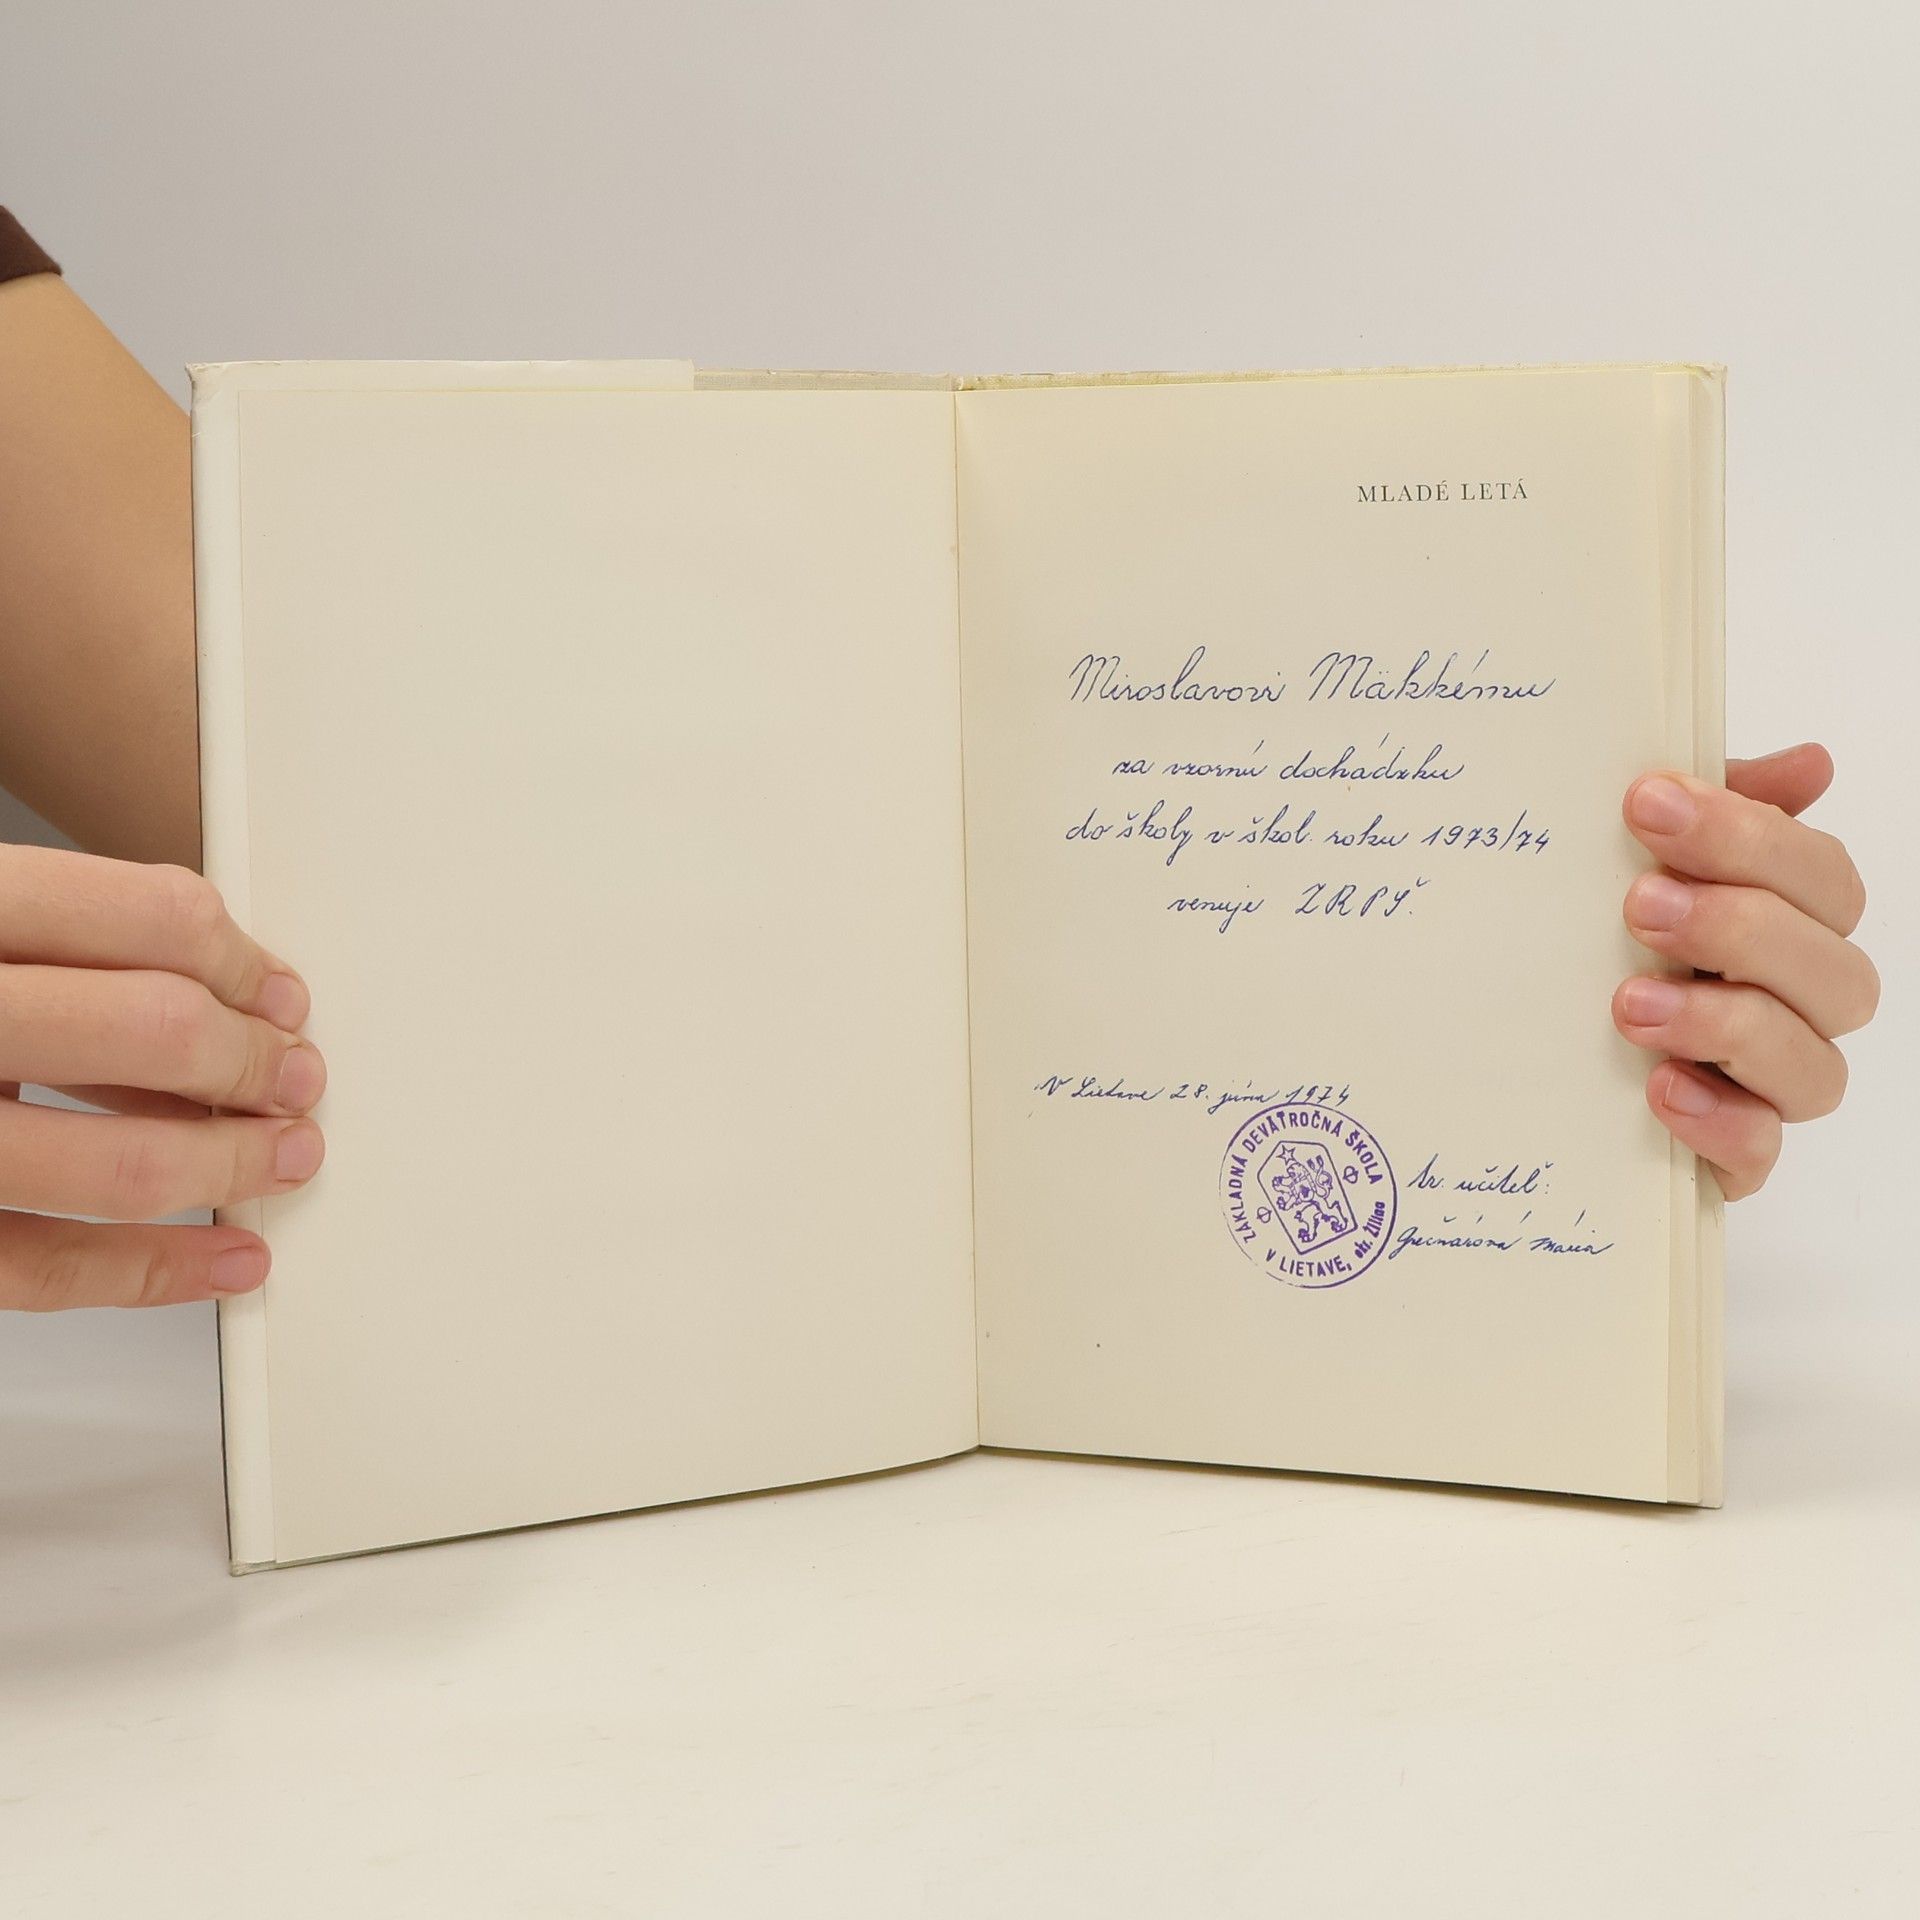 MLADÉ LETÁ
Miroslavovi Mäkkému
za vzornú dochádzku
do školy v škol. roku 1973/74
venuje ZRPŠ.
V Lietave 28. júna 1974
ZÁKLADNÁ DEVÄŤROČNÁ ŠKOLA
V LIETAVE, okr. Žilina
tr. učiteľ:
Grečnárová Mária